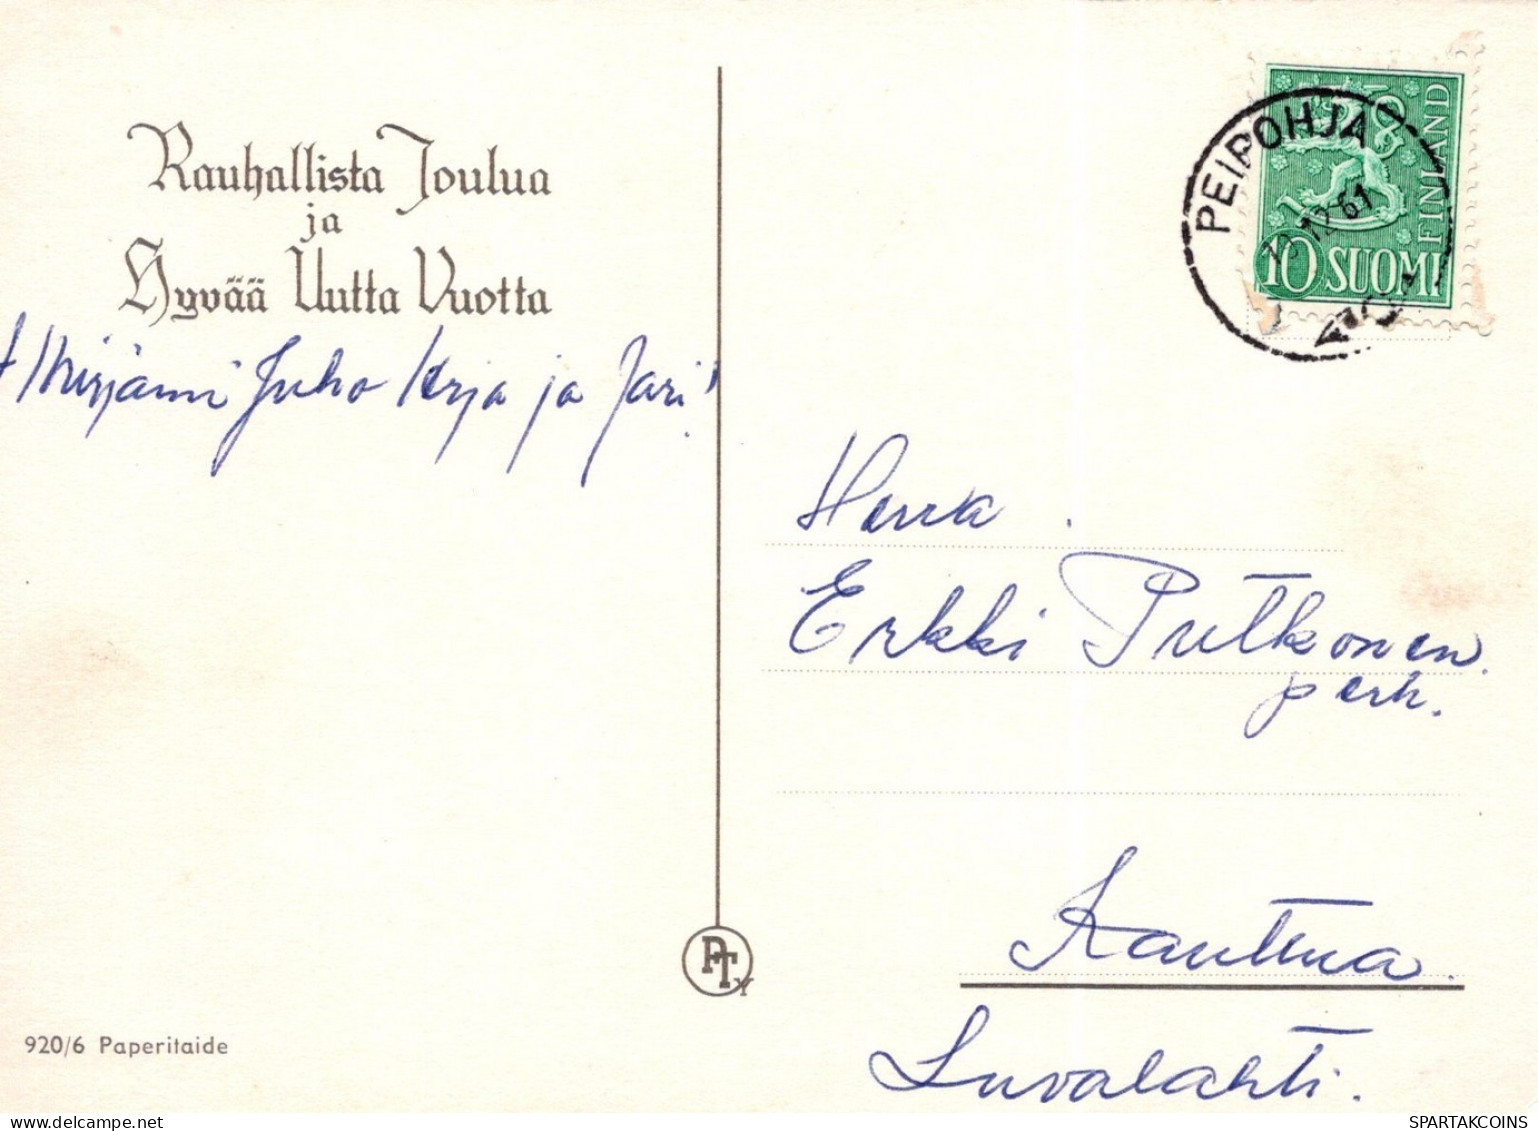 Rauhallista Joulua
ja
Hyvää Uutta Vuotta
Mirjami Juho Kirja ja Jari
PEIPOHJA
12 61
10 SUOMI
FINLAND
Herra
Erkki Putkonen
perh.
Kauttua
Luvalahti.
PT
Y
920/6 Paperitaide
SPARTAKCOINS